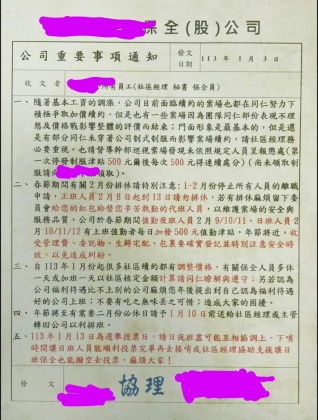 保全(股)公司
公司重要事項通知
發文日期
113年1月3日
收文者
所有員工(社區經理 秘書 保全員)
一、隨著基本工資的調漲,公司目前面臨續約的案場也都在同仁努力下
積極爭取加價續約,但是也有一些案場因為團隊同仁部份表現不理
想及價格戰影響整體的評價而結束;門面形象是最基本的,但是還
是有部分同仁未穿著公司制式服而影響合約續約,請社區經理務
必要重視。也請督導幹部巡視案場發現未依照規定人員呈報懲處(第
一次停發制服津貼500元爾後每次500元得連續處分)(尚未領取制
服請向 領取)。
二、春節期間有關2月份排休請特別注意:1-2月份停止所有人員的離職
申請,正班人員2月8日起到13日請勿排休,若有排休麻煩留下委
員會給您的紅包給替您辛苦執勤的代班人員,以維護案場的安全與
服務品質,公司於春節期間值勤夜班人員2月9/10/11、日班人員2
月10/11/12有上班值勤者每日加發500元值勤津貼,年節將近,收
受管理費、委託物、生鮮宅配、包裹要確實登記並特別注意安全時
效,以免造成糾紛。
三、自113年1月份起很多社區續約都有調整價格,有關保全人員多休
一天或加班一天以社區核定金額計算請同仁瞭解與遵守;另若認為
公司福利待遇比不上別的公司麻煩您年後提出到自己認為福利待遇
好的公司上班;不要有吃之無味丟之可惜;造成大家的困擾。
四、年節將至有需要二月份公休日請於1月10日前送給社區經理或主管
轉回公司以利排班。
五、113年1月13日為選舉投票日,請日夜班盡可能互相協調上、下哨
時間讓日班人員能順利投票完畢再去接哨或社區經理協助支援讓日
班保全也能撥空去投票,麻煩大家!
發文
協理